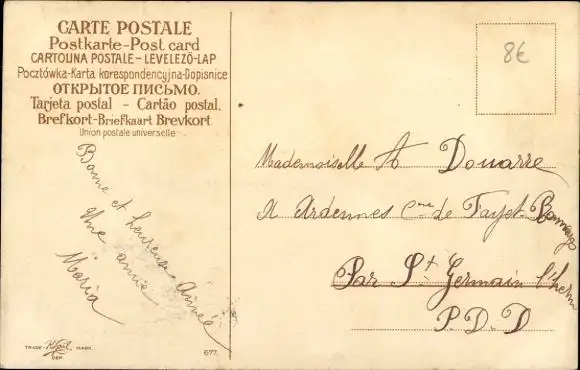 CARTE POSTALE
Postkarte-Post card
CARTOLINA POSTALE-LEVELEZŐ-LAP
Pocztówka-Karta korespondencyjna-Dopisnice
ОТКРЫТОЕ ПИСЬМО.
Tarjeta postal - Cartão postal.
Brefkort-Briefkaart Brevkort
Union postale universelle
Bonne et heureuse Année
Une amie
Maria
TRADE MARK.
DEP.
677.
8€
Mademoiselle A Douarre
A Ardennes Cne de Fayet-Ronnaye
Par St Germain l'herm
P.D.D